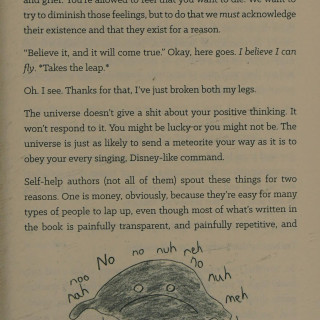 and grief. You're allowed to feel that you want to die. We want to
try to diminish those feelings, but to do that we must acknowledge
their existence and that they exist for a reason.
"Believe it, and it will come true." Okay, here goes. I believe I can
fly. *Takes the leap.*
Oh. I see. Thanks for that, I've just broken both my legs.
The universe doesn't give a shit about your positive thinking. It
won't respond to it. You might be lucky-or you might not be. The
universe is just as likely to send a meteorite your way as it is to
obey your every singing, Disney-like command.
Self-help authors (not all of them) spout these things for two
reasons. One is money, obviously, because they're easy for many
types of people to lap up, even though most of what's written in
the book is painfully transparent, and painfully repetitive, and
No no nuh neh
no
noo nuh
nah meh